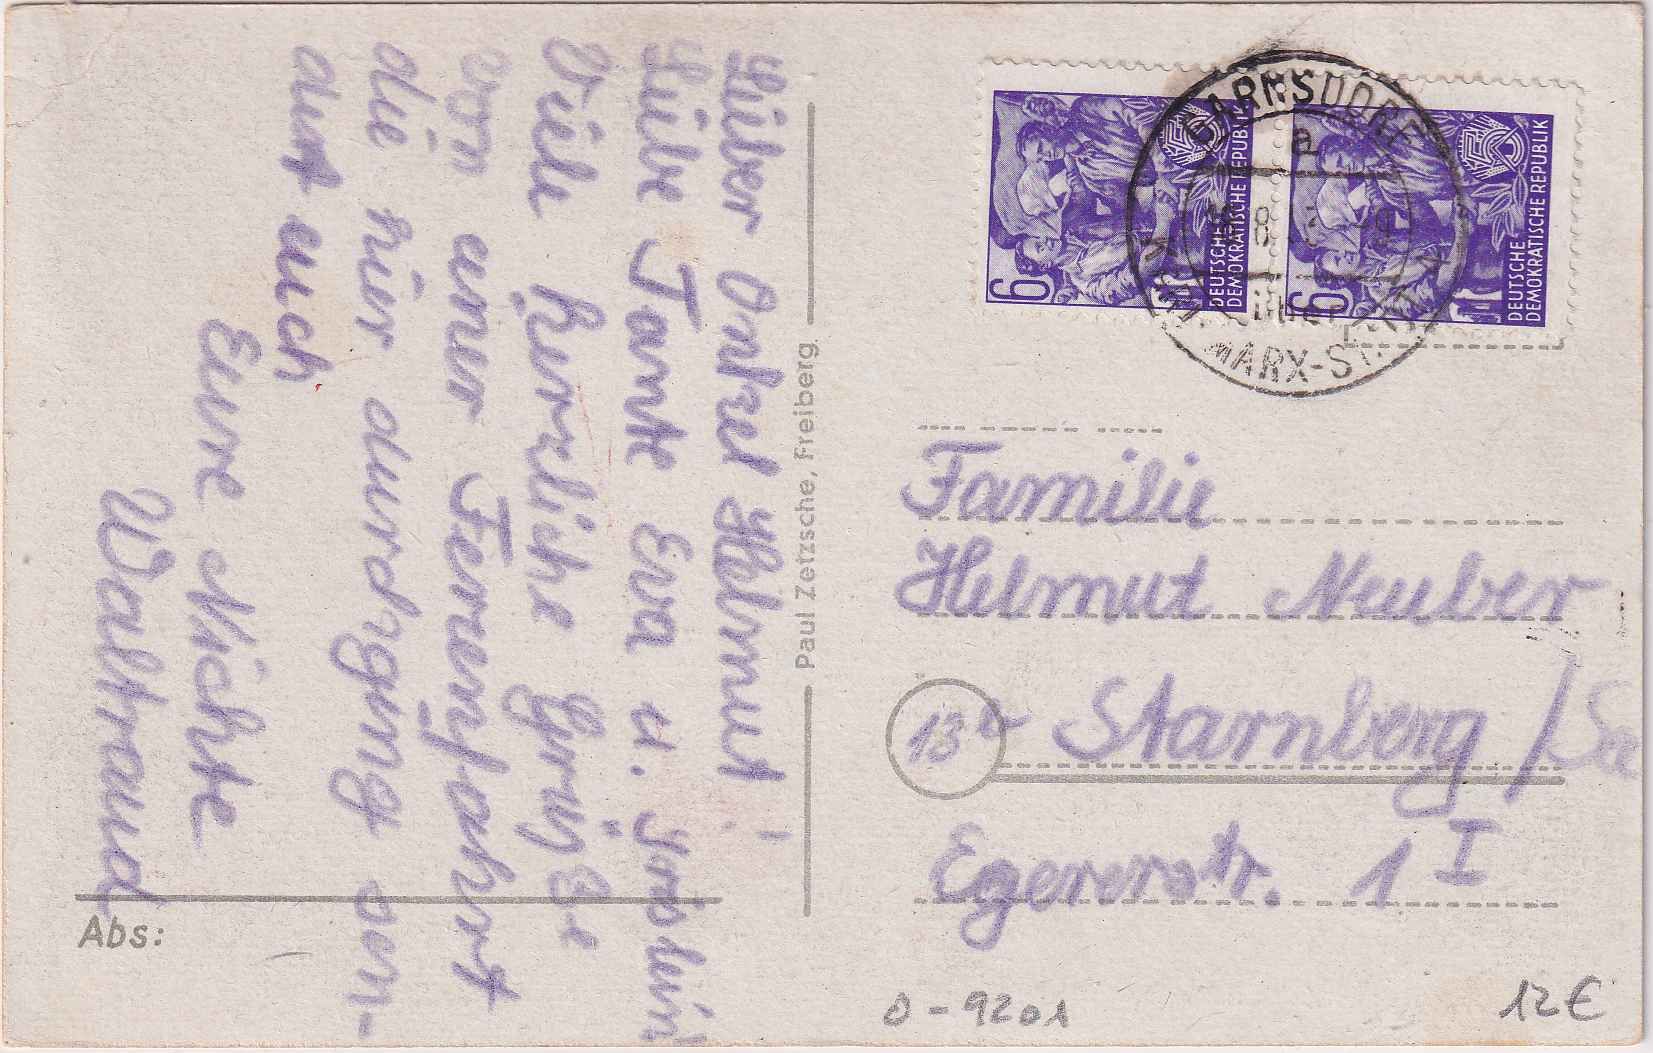 Lieber Onkel Helmut!
Liebe Tante Eva u. Irislein
Viele herzliche Grüße
von einer Ferienfahrt
die hier durchging sen-
det euch
Eure Nichte
Waltraud
Abs:
Paul Zetzsche, Freiberg
6
DEUTSCHE
DEMOKRATISCHE REPUBLIK
6
DEUTSCHE
DEMOKRATISCHE REPUBLIK
GARNSDORF
a
MARX-ST
Familie
Helmut Neuber
13b Starnberg / See
Egererstr. 1 I
0-9201
12€